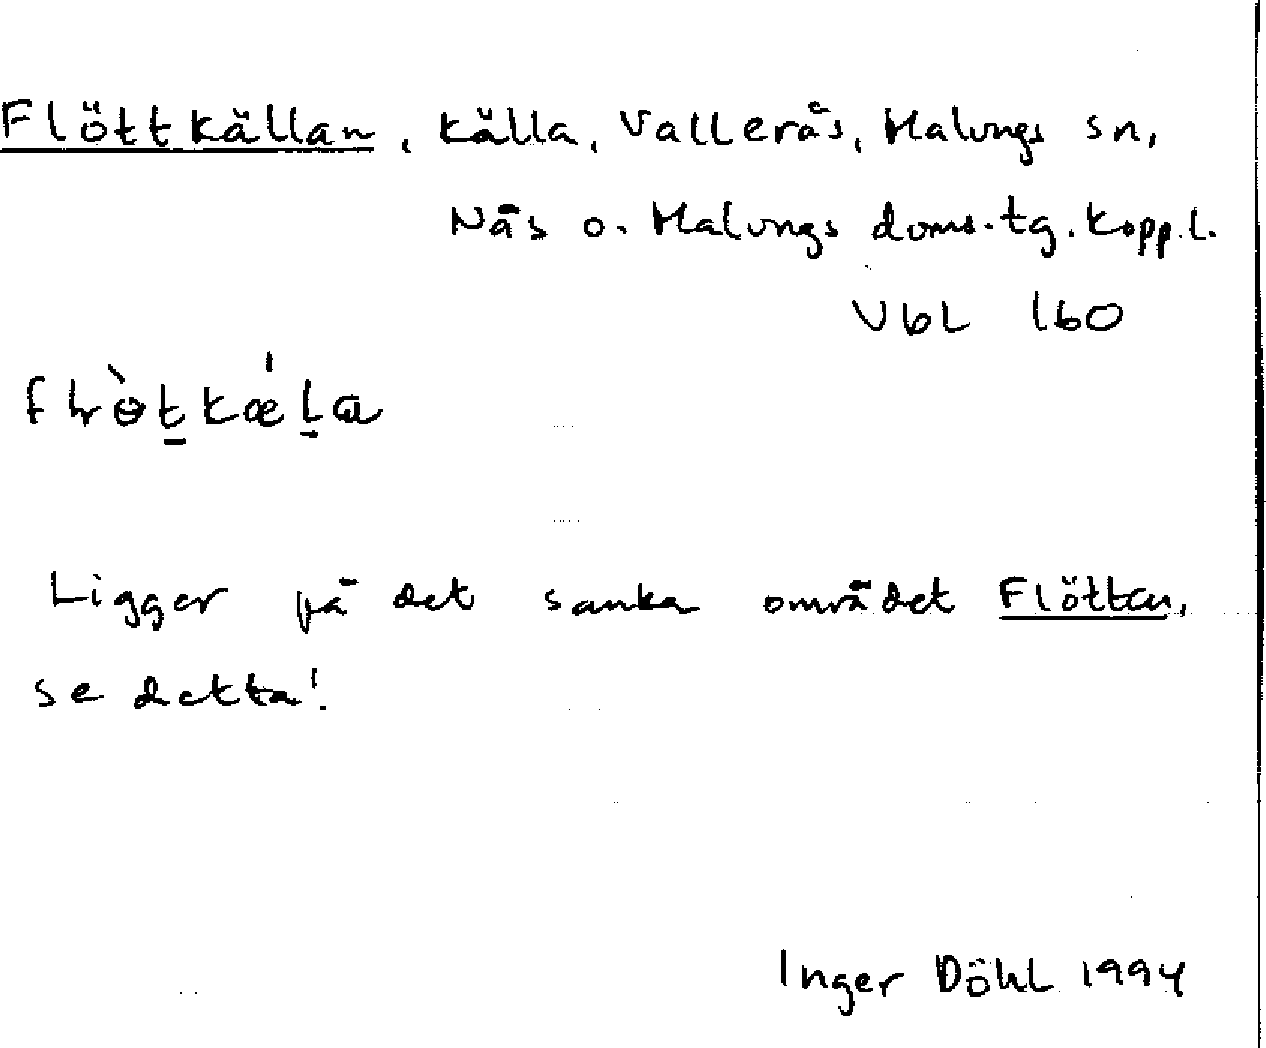 Flöttkällan, källa, Vallerås, Malungs sn,
Nås o. Malungs doms.tg. Kopp.l.
VbL 160
Ligger på det sanka området Flöttan,
se detta!
Inger Döhl 1994